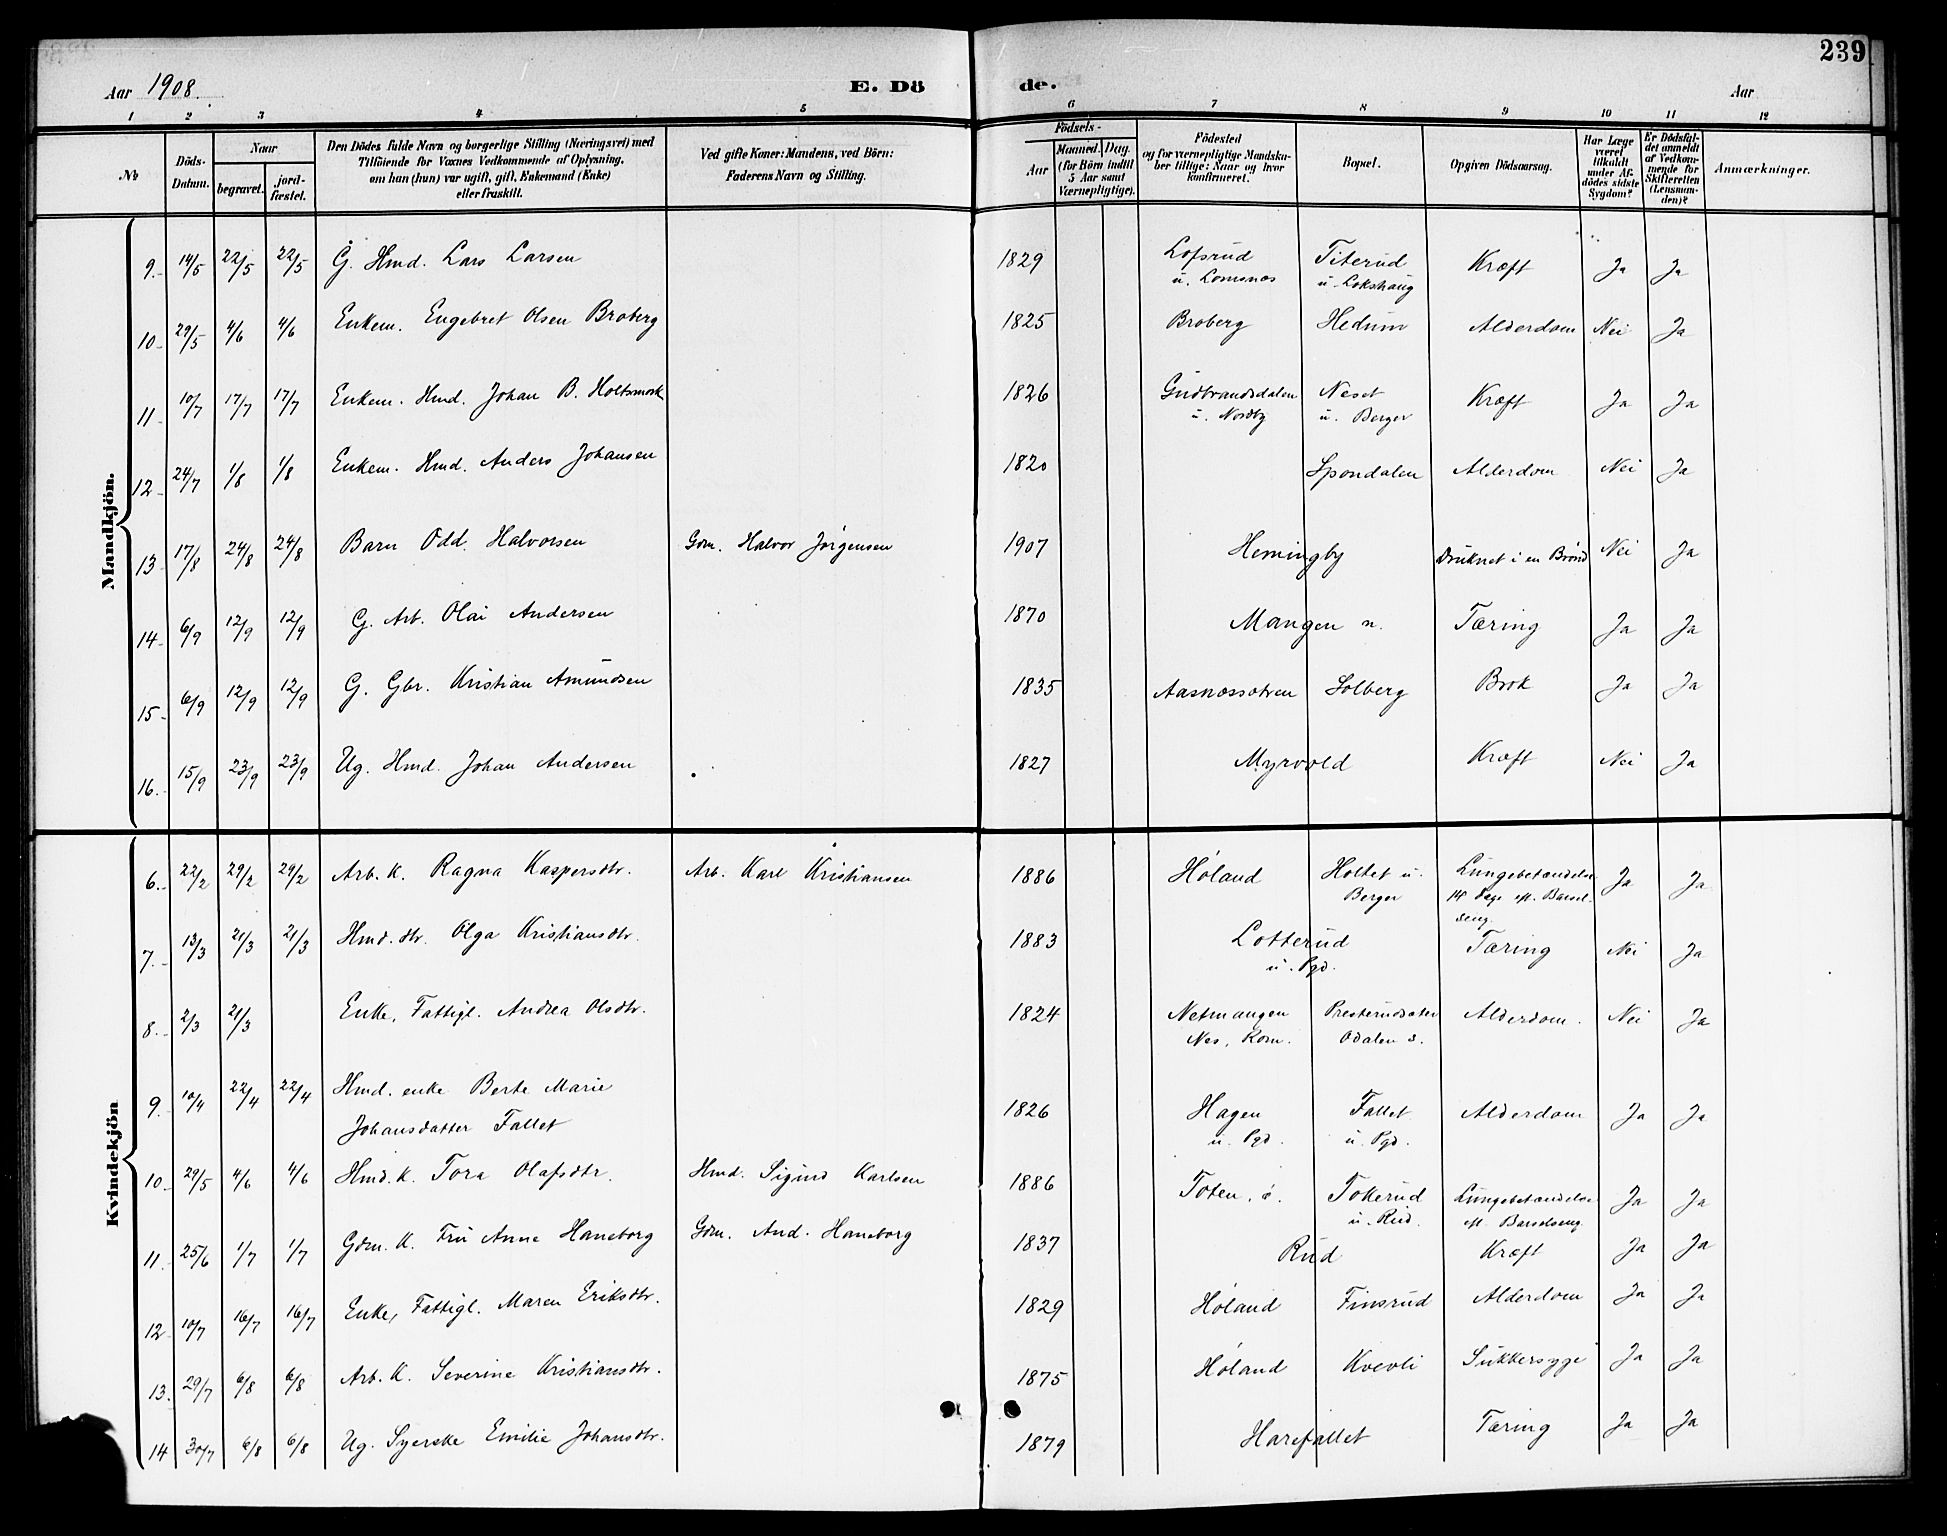 239
Aar 1908. E. Dö de. Aar
1 2 3 4 5 6 7 8 9 10 11 12
No
Döds-Datum.
Naar
begravet.
jord-fæstet.
Den Dödes fulde Navn og borgerlige Stilling (Næringsvei) med
Tilföiende for Voxnes Vedkommende af Oplysning,
om han (hun) var ugift, gift, Enkemand (Enke)
eller fraskilt.
Ved gifte Koner: Mandens, ved Börn:
Faderens Navn og Stilling.
Födsels-
Aar
Maaned. Dag.
(for Börn indtil
5 Aar samt
Værnepligtige).
Födested
og for værnepligtige Mandska-
ber tillige: Naar og hvor
konfirmeret.
Bopæl.
Opgiven Dödsaarsag.
Har Læge
været
tilkaldt
under Af-
dödes sidste
Sygdom?
Er Dödsfal-
det anmeldt
af Vedkom-
mende for
Skifteretten
(Lensman-
den)?
Anmærkninger.
Mandkjön.
9. 14/5 22/5 22/5 G. Hmd. Lars Larsen 1829 Lofsrud Titerud Kræft Ja Ja
u. Lomsnes u. Lokshaug
10. 29/5 4/6 4/6 Enkem. Engebret Olsen Broberg 1825 Broberg Hedum Alderdom Nei Ja
11. 10/7 17/7 17/7 Enkem. Hmd. Johan B. Holtsmark 1826 Gudbrandsdalen Neset Kræft Ja Ja
u. Nordby u. Berger
12. 24/7 1/8 1/8 Enkem. Hmd. Anders Johansen 1820 Spondalen Alderdom Nei Ja
13 17/8 24/8 24/8 Barn Odd Halvorsen Gdm. Halvor Jørgensen 1907 Hemingby Druknet i en Brønd Nei Ja
14. 6/9 12/9 12/9 G. Arb. Olai Andersen 1870 Mangen n. Tæring Ja Ja
15. 6/9 12/9 12/9 G. Gbr. Kristian Amundsen 1835 Aasnessætren Solberg Brok Ja Ja
16. 15/9 23/9 23/9 Ug. Hmd. Johan Andersen 1827 Myrvold Kræft Nei Ja
Kvindekjön
6. 22/2 29/2 29/2 Arb. K. Ragna Kaspersdtr. Arb. Karl Kristiansen 1886 Høland Holtet u. Lungebetændelse Ja Ja
Berger 14 Dage eft. Barsel-
seng.
7. 13/3 21/3 21/3 Hmd. dtr. Olga Kristiansdtr. 1883 Lotterud Tæring Nei Ja
u. Pgd.
8. 2/3 21/3 Enke, Fattigl. Andrea Olsdtr. 1824 Netmangen Presterudsæter Alderdom. Nei Ja
Nes, Rom. Odalen s.
9. 10/4 22/4 22/4 Hmd. enke Berte Marie
Johansdatter Fallet 1826 Hagen Fallet Alderdom Ja Ja
u. Pgd. u. Pgd.
10. 29/5 4/6 4/6 Hmd. K. Tora Olafsdtr. Hmd. Sigurd Karlsen 1886 Toten, ø. Tokerud Lungebetændelse Ja Ja
u. Rud. eft. Barselseng
11. 25/6 1/7 1/7 Gdm. K. Fru Anne Haneborg Gdm. And. Haneborg 1837 Rud Kræft Ja Ja
12 10/7 16/7 16/7 Enke, Fattigl. Maren Eriksdtr. 1829 Høland Finsrud Alderdom Ja Ja
13. 29/7 6/8 6/8 Arb. K. Severine Kristiansdtr. 1875 Høland Kvevli Sukkersyge Ja Ja
14 30/7 6/8 6/8 Ug. Syerske Emilie Johansdtr. 1879 Harefallet Tæring Ja Ja